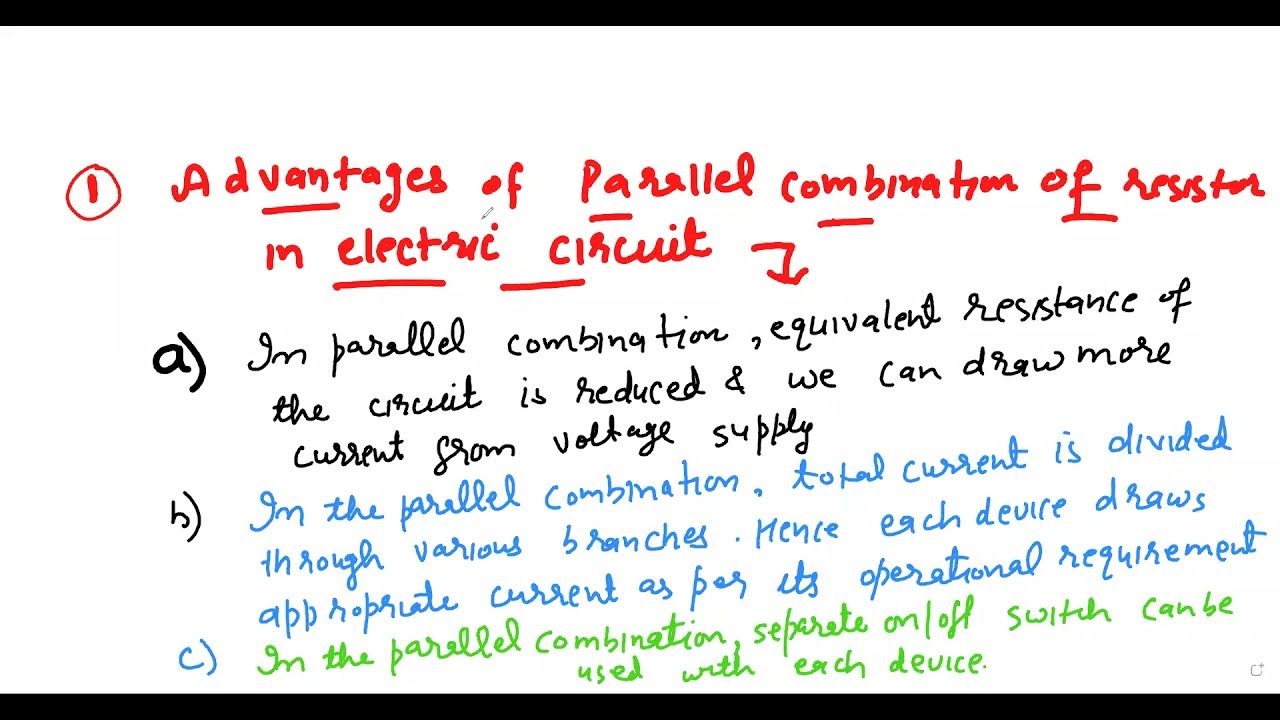 ① Advantages of Parallel combination of resistor
in electric circuit
a) In parallel combination, equivalent resistance of
the circuit is reduced & we can draw more
current from voltage supply
b) In the parallel combination, total current is divided
through various branches. Hence each device draws
appropriate current as per its operational requirement
c) In the parallel combination, separate on/off switch can be
used with each device.